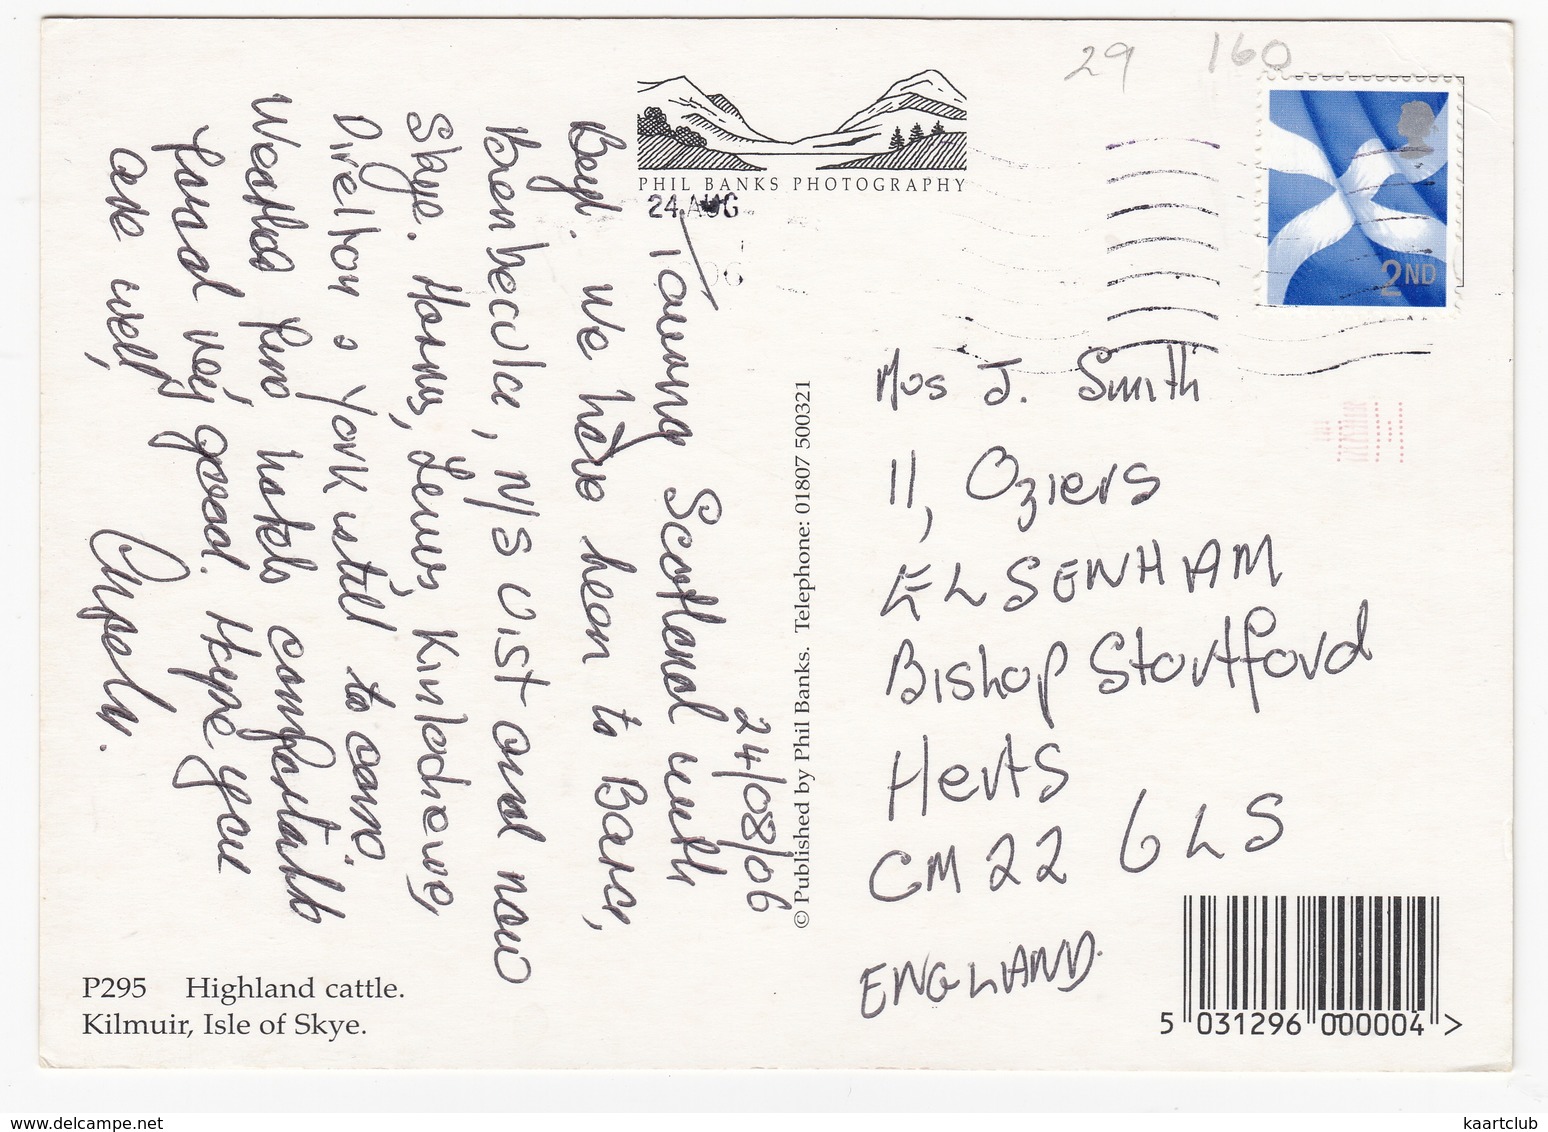 29 160
PHIL BANKS PHOTOGRAPHY
24 AUG
06
2ND
24/08/06
Touring Scotland with
We have been to Barra,
Benbecula, N/S Uist and now
Skye. Harris, Lewis, Kinlochewe,
Direlton & York still to come.
Weather fine hotels comfortable
food very good. Hope you
are well,
© Published by Phil Banks. Telephone: 01807 500321
Mrs J. Smith
11, Oziers
ELSENHAM
Bishop Stortford
Herts
CM22 6LS
ENGLAND.
P295 Highland cattle.
Kilmuir, Isle of Skye.
5 031296 000004 >
www.delcampe.net
kaartclub